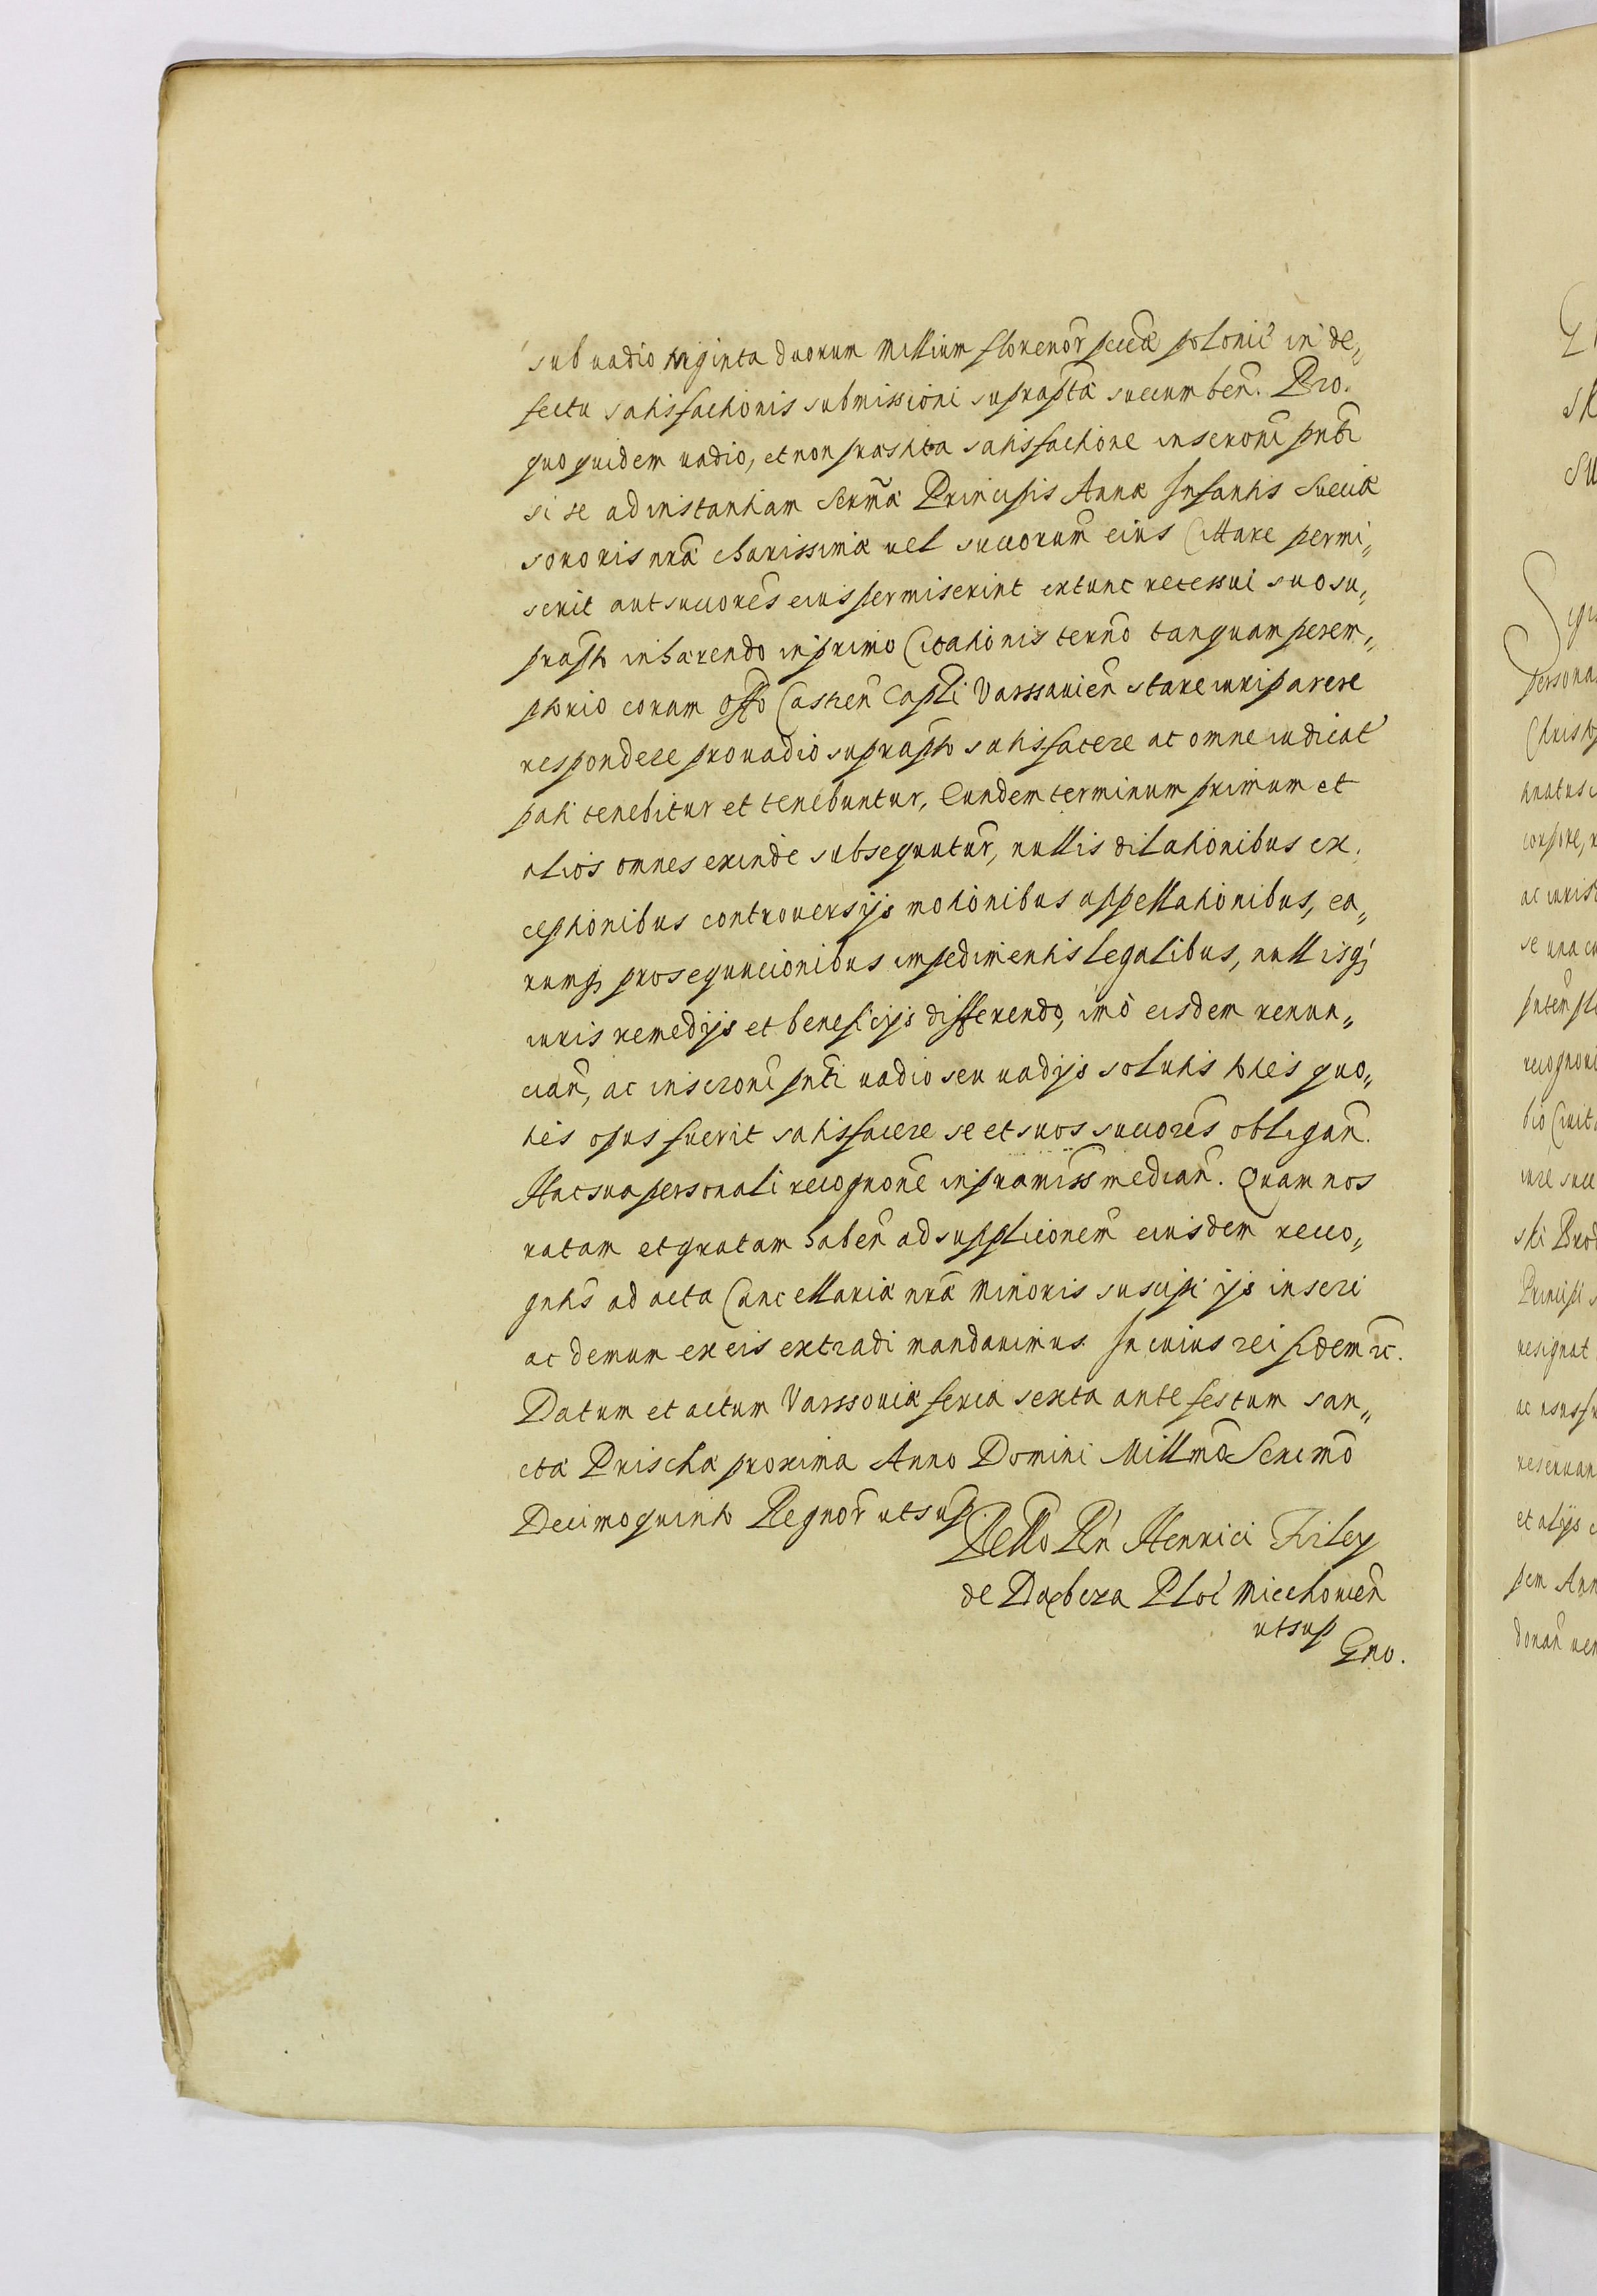 sub vadio triginta duorum Millium florenor̃ pecc̃æ polonic̃ in de„
fectu satisfactionis submissioni supraptæ̃ succumben̄. Pro.
quo quidem vadio, et non præstita satisfactione inscroni p̃nti
si se ad instantiam Serm̃æ Principis Annæ Infantis Sueciæ
sororis nr̃æ charissimæ vel succorum̃ eius Cittare permi„
serit aut succores̃ eius permiserint extunc recessui suo su„
prapto inhærendo in primo Citationis termo̅ tanquam perem„
ptorio coram offo̅ Castren̄ Capli Varssauien̄ stare iuri parere
respondere pro vadio suprapto satisfacere ac omne iudicat̃
pati tenebitur et tenebuntur, Eundem terminum primum et
alios omnes exinde subsequutur̃, nullis dilationibus ex.
ceptionibus controuersijs motionibus appellationibus, ea„
rumq; prosequucionibus impedimentis legalibus, nullisq;
iuris remedijs et beneficijs differendo, imò eisdem renun„
cian̄, ac inscroni p̃nti vadio seu vadijs solutis toties quo„
ties opus fuerit satisfacere se et suos succores̃ obligan̄.
Hac sua personali recognone̅ in præmiss̃ median̄. Quam nos
ratam et gratam haben̄ ad supplicionem̃ eiusdem reco„
gntis̃ ad acta Cancellariæ nr̃æ Minoris suscipi ijs inseri
ac demum ex eis extradi mandauimus. In cuius rei fidem ꝛc.
Datum et actum Varssouiæ feria sexta ante festum san„
ctæ Prischæ proxima Anno Domini Millmo̅ Sexcmo̅
Decimoquinto Regnor̃ ut sup.
Rello Rn̄ Henrici Firley
de Dąbrza Ploc̃ Miechouien̄
ut sup
Gno.